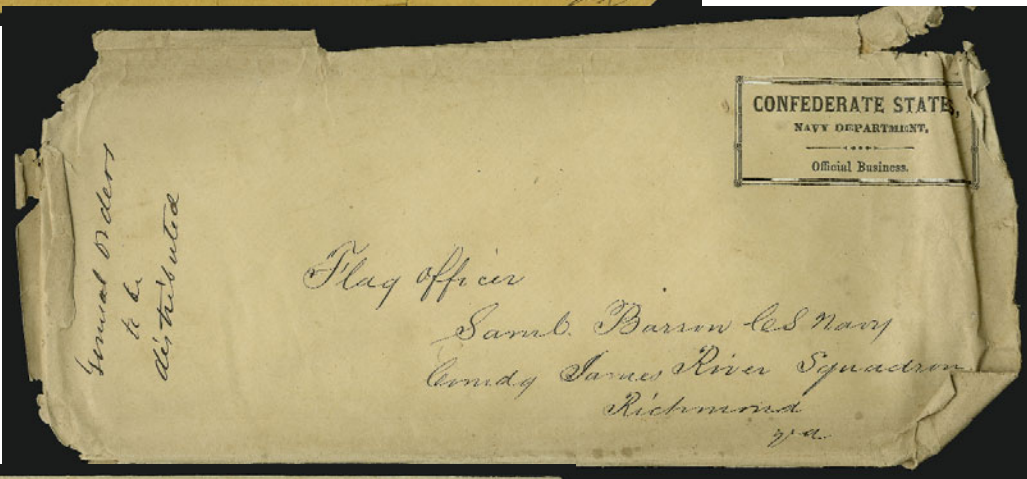 CONFEDERATE STATES,
NAVY DEPARTMENT,
Official Business.
General Orders
to be
distributed
Flag Officer
Saml. Barron CS Navy
Comdg James River Squadron
Richmond
Va